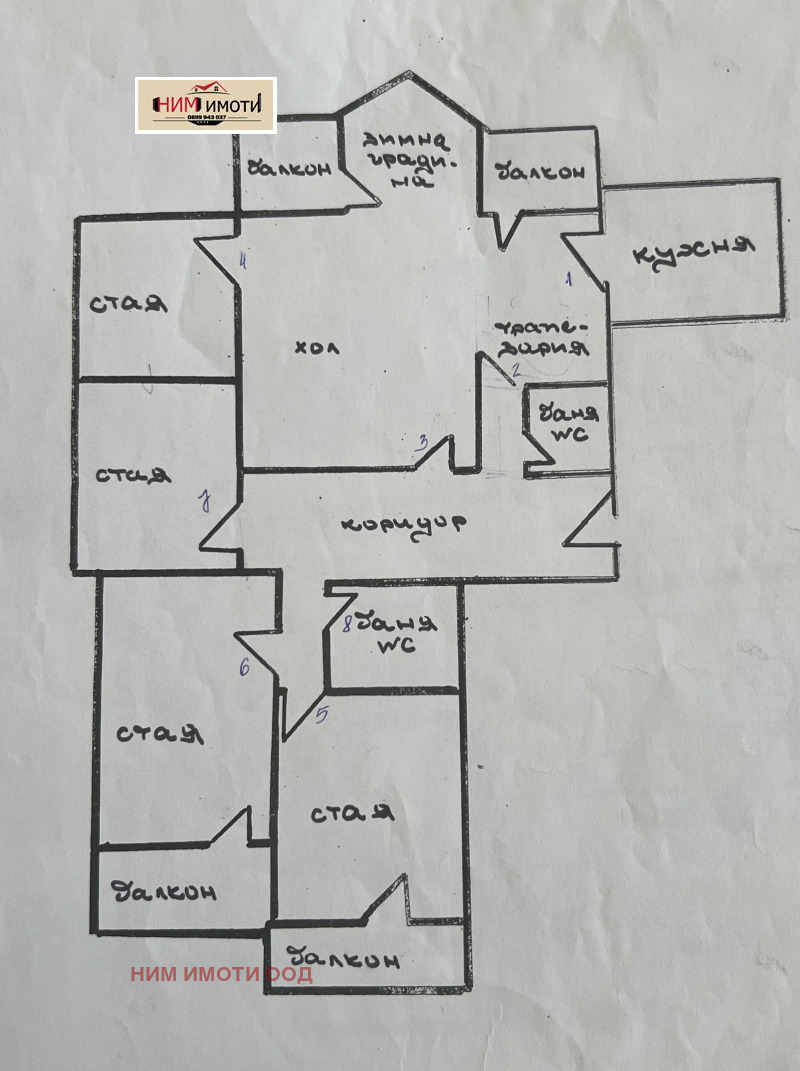 НИМ ИМОТИ
0899 943 037
зимна
гради-
на
балкон
балкон
кухня
4
1
стая
хол
трапе-
зария
2
баня
WC
3
стая
7
коридор
8
баня
WC
6
5
стая
стая
балкон
балкон
НИМ ИМОТИ ООД